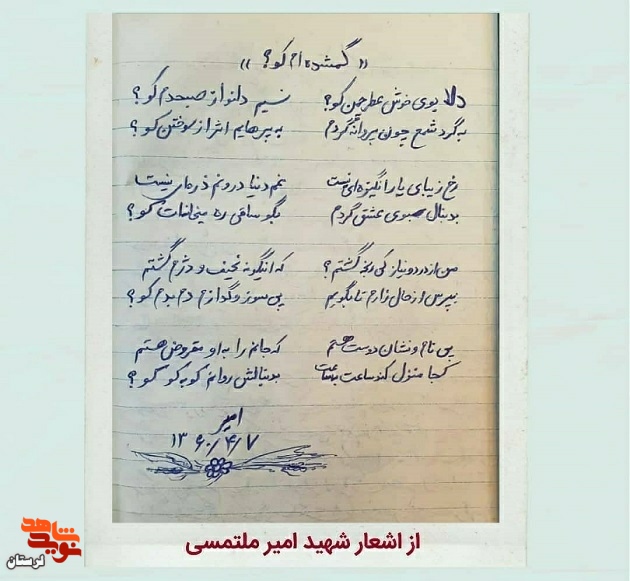 «گمشده ام کو؟»
دلا بوی خوش عطر چمن کو؟ نسیم دلنواز صبحدم کو؟
به گرد شمع چون پروانه گردم به پرهایم اثر از سوختن کو؟
رخ زیبای یار انگیزه ای نیست غم دنیا درونم ذره ای نیست
بدنبال سبوی عشق گردم بگو ساقی ره میخانه ات کو؟
من از درد و نیاز کی رنجه گشتم؟ که اینگونه نحیف و دژم گشتم
بپرس از حال زارم تا بگویم پی سوز و گدازم دم بدم کو؟
پی نام و نشان دوست هستم که جانم را به او مقروض هستم
کجا منزل کند ساعت به بدنبالش روانم کو به کو کو؟
امیر
۱۳۶۰/۴/۷
از اشعار شهید امیر ملتمسی
نوید شاهد
لرستان